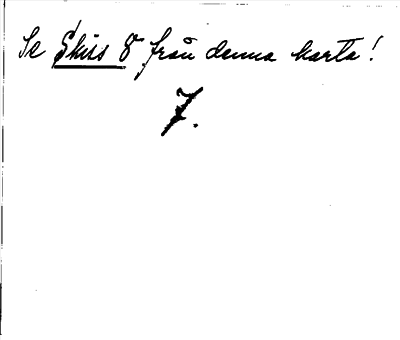 Se Skiss 8 från denna karta!
7.